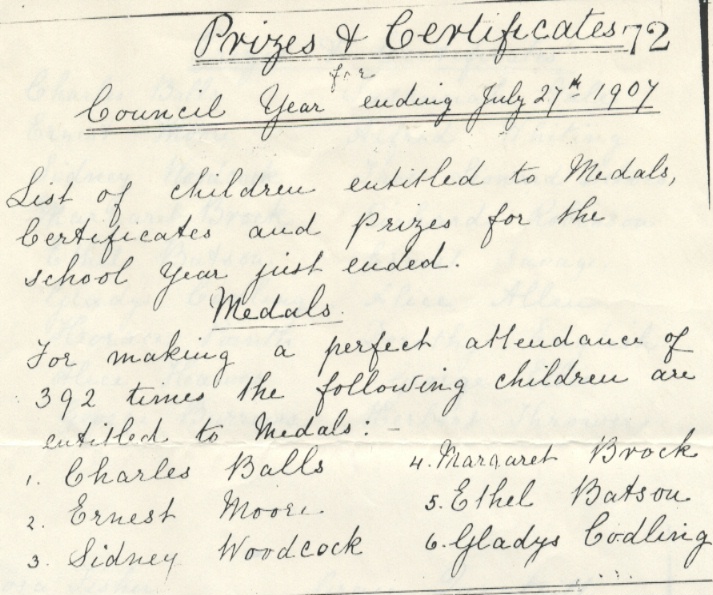 Prizes & Certificates 72
for
Council Year ending July 27th 1907
List of children entitled to Medals,
Certificates and Prizes for the
school year just ended.
Medals.
For making a perfect attendance of
392 times the following children are
entitled to Medals: -
1. Charles Balls
2. Ernest Moore
3. Sidney Woodcock
4. Margaret Brock
5. Ethel Batson
6. Gladys Codling